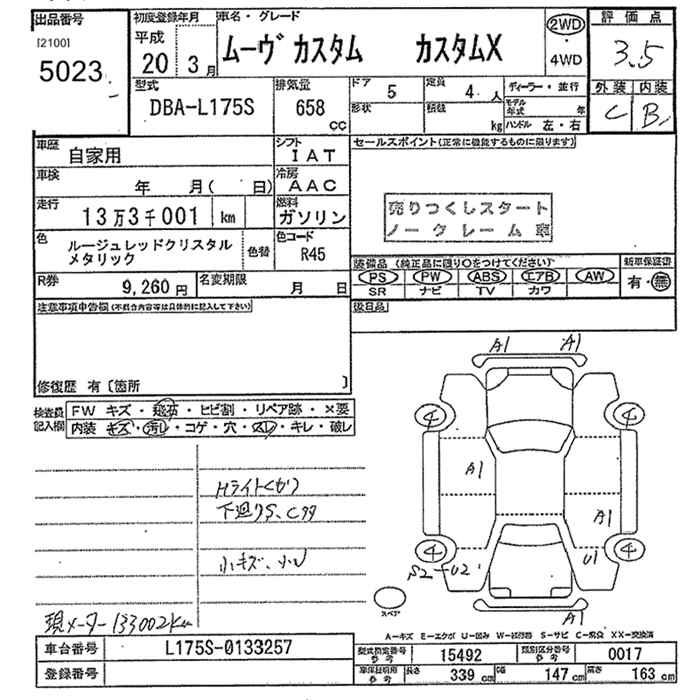 出品番号 初度登録年月 車名・グレード 評価点
[2100] 平成
5023 20年 3月 ムーヴカスタム カスタムX 2WD・4WD 3.5
型式 排気量 ドア 5 定員 4人 ディーラー・並行 外装 内装
DBA-L175S 658 cc 形状 積載 kg モデル年式 年 C B
ハンドル 左・右
車歴 自家用 シフト IAT セールスポイント(正常に機能するものに限ります)
車検 年 月( 日) 冷房 AAC
走行 13万3千001 km 燃料 ガソリン 売りつくしスタート
ノークレーム車
色 ルージュレッドクリスタル 色替 色コード R45
メタリック
装備品 (純正品に限り○をつけてください) 新車保証書
PS PW ABS エアB AW 有・無
R券 9,260円 名変期限 月 日 SR ナビ TV カワ
注意事項申告欄(不具合内容等は具体的に記入して下さい) 後日品
修復歴 有〔箇所 〕
検査員記入欄 FW キズ・飛石・ヒビ割・リペア跡・×要
内装 キズ・汚レ・コゲ・穴・スレ・キレ・破レ
A1 A1
4 4
A1
A1
4 4
S2-U2 U1
A1
Hライトくもり
下廻りS、Cクサ
小キズ、小U
現メーター133002km
スペア
A-キズ E-エクボ U-凹み W-補修跡 S-サビ C-腐食 XX-交換済
車台番号 L175S-0133257 型式指定番号 参考 15492 類別区分番号 参考 0017
登録番号 車庫証明用 参考 長さ 339cm 幅 147cm 高さ 163cm